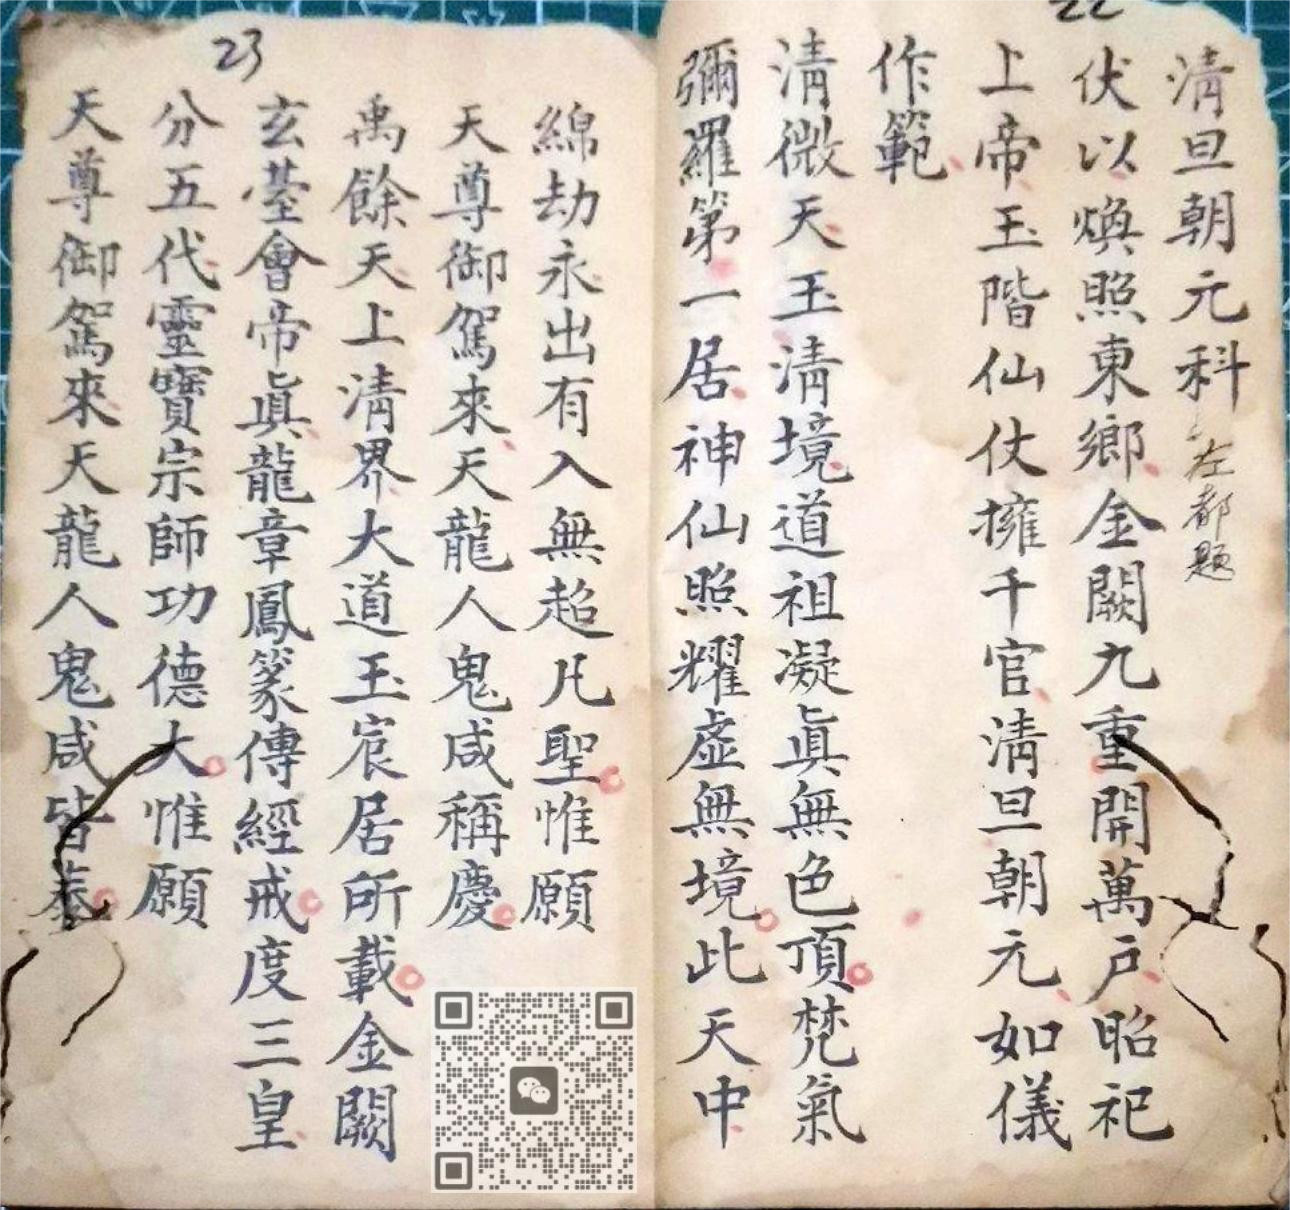 22
清旦朝元科 左都題
伏以煥照東鄉金闕九重開萬戶昭祀
上帝玉階仙仗擁千官清旦朝元如儀
作範
清微天玉清境道祖凝眞無色頂梵氣
彌羅第一居神仙照耀虛無境此天中
23
綿劫永出有入無超凡聖惟願
天尊御駕來天龍人鬼咸稱慶
禹餘天上清界大道玉宸居所載金闕
玄臺會帝眞龍章鳳篆傳經戒度三皇
分五代靈寶宗師功德大惟願
天尊御駕來天龍人鬼咸皆泰